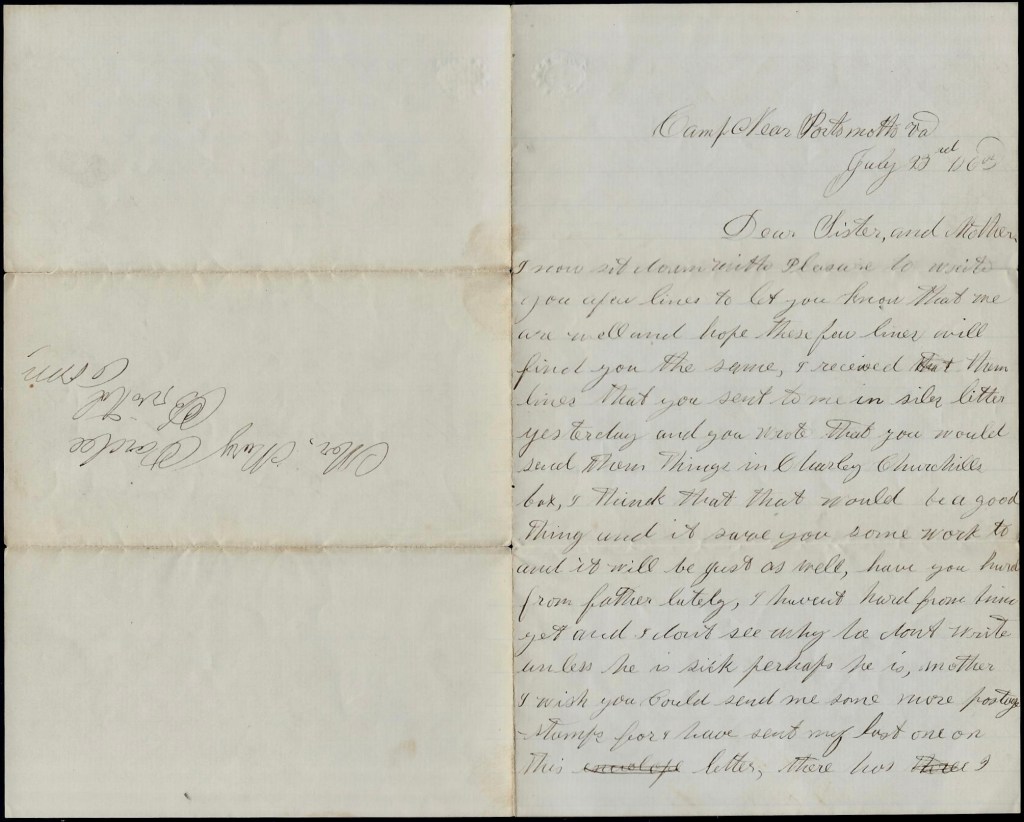 Camp Near Portsmotth Va
July 23rd 1863
Dear Sister, and Mother
I now sit down with Pleasure to write
you afew lines to let you know that we
are well and hope these few lines will
find you the same, I received that them
lines that you sent to me in siles litter
yesterday and you wrote that you would
send them things in Charley Churchills
box, I think that that would be a good
thing and it save you some work to
and it will be just as well, have you hurd
from father lately, I havent hard from him
yet and I dont see why he dont write
unless he is sick perhaps he is, mother
I wish you could send me some more postage
stamps for I have sent my last one on
this envelope letter, there has three 3
Mary
Bristol
Conn,